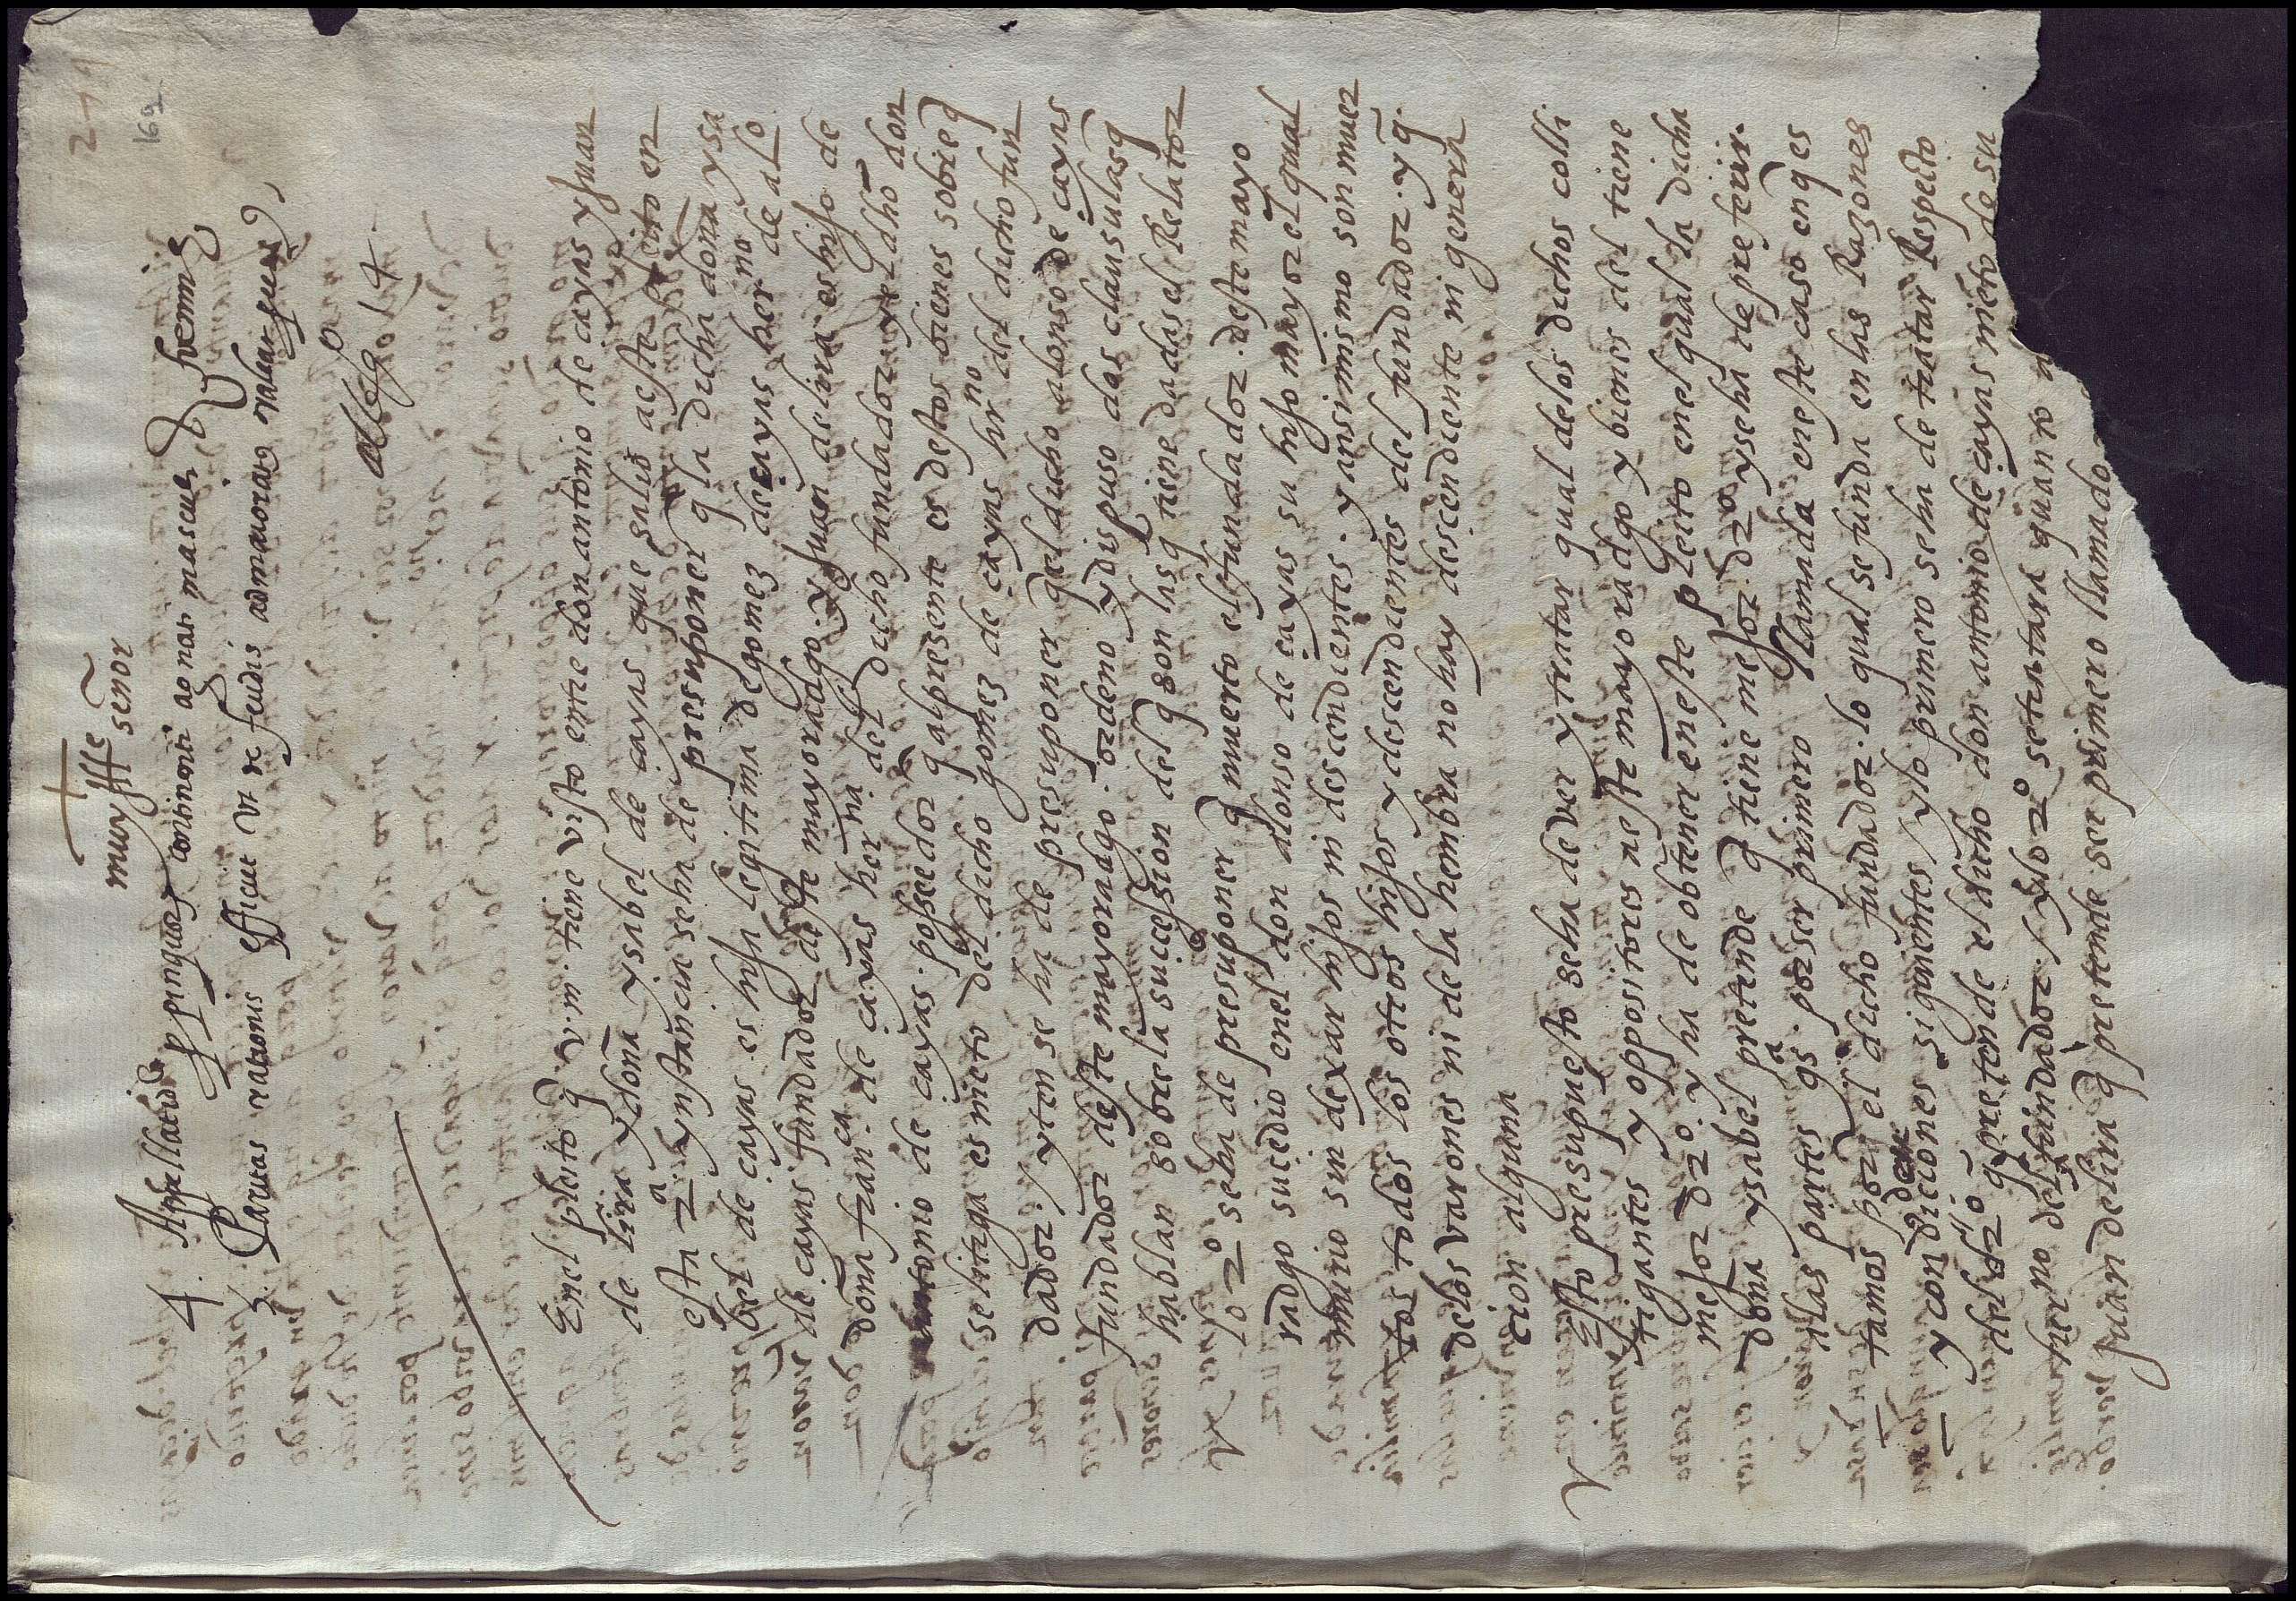 2-19
169
+
muy Ille señor
4. Appellatio propinquor continenti ag nati mascul. & foemine
3. Paritas rationis efficit vt de feudis ad maioratus valeat
Enel pleito q̃ v.m. tiene visto entre don antonio de cayas y Juan
de lira y doña ysabel de cayas que salio aeste pleito en
esta 2ª ynstancia seha de presuponer q̃ la dicha doña ysa
bel de cayas es hija legitima de gomez de cayas herno de alo
de cayas fundador deste mayoradgo. y Juan de lira es hijo de
doña franca de cayas herna del dicho fundador y el dho don
antonio de cayas. posseedor q̃ al presente es destos bienes sobre q̃
se litiga es nieto del dicho gomez de cayas hrno del dicho fun
dador./ yten se ha de presuponer q̃ el dicho alonso de cayas
fundador deste mayoradgo. ordeno y dispuso das clausulas q̃
hablan sobre la succession del q̃ son las q̃ tiene dadas el Relator
lo 2º seha de presuponer q̃ muerto el fundador. deste mayo
radgo sucedio enel don alonso de cayas su hijo mayor el qual
murio sin dexar hijos ni descendientes. y ansimismo son muer
tos todos los otros hijos y descendientes del fundador. y q̃.
delos varones ni de la hembra no hay descendiente ni genera
cion alguna
Esto presupuesto seha de ver y tratar qual delos dichos coli
tigantes y oppositores neste mayoradgo y bienes del tiene
mejor dr̃o. y ha de obtener eneste pleito enel qual la dicha
doña ysabel pretende q̃ tiene mejor. dr̃o y seha de preferir.
alas partes qs. por ser primero llamada eneste caso en q̃ es
tamos por el dicho fundador. lo qual se funda en las Razones
y condiciones siguientes / y lo primero seha de tratar Respeto
del dr̃o q̃ pretende el dicho don antonio de cayas nieto de su
herno del fundador./ y lo 2º setratara quanto a
Juan de lira q̃ pretende ser primero llamado